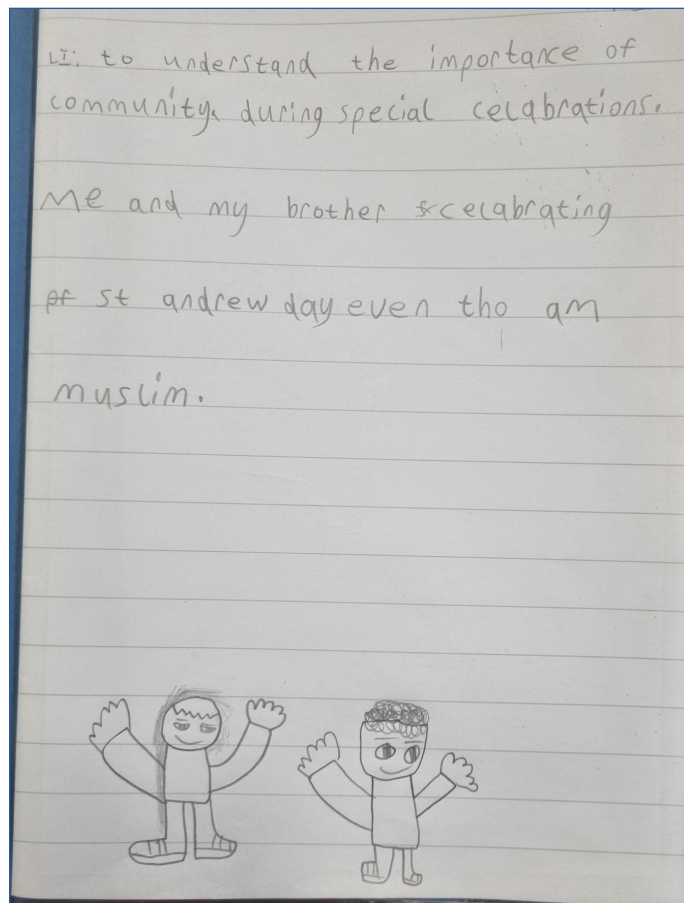 LI: to understand the importance of
community, during special celabrations.
Me and my brother celabrating
of st andrew day even tho am
muslim.